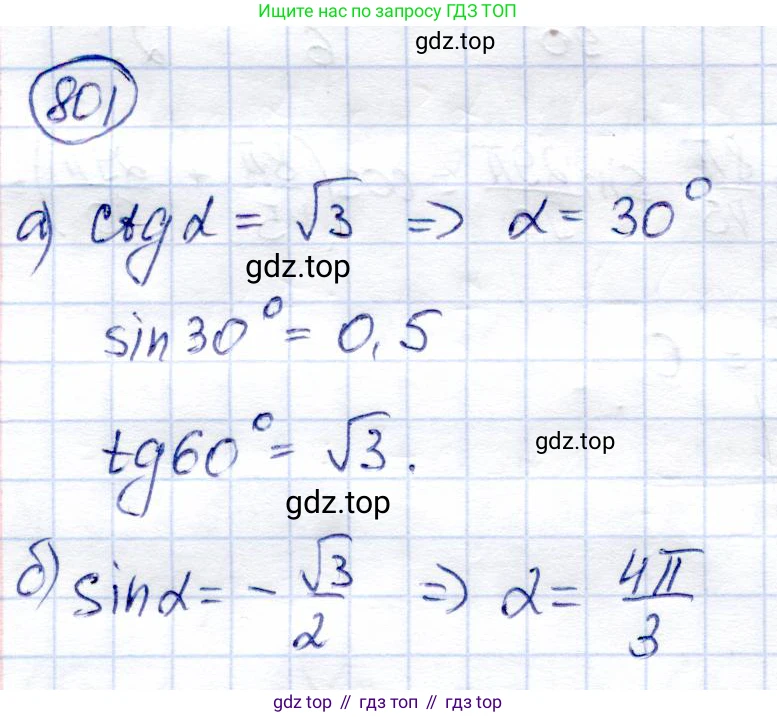 Ищите нас по запросу ГДЗ ТОП
gdz.top
801
а) ctg α = √3 => α = 30°
gdz.top
sin 30° = 0,5
tg 60° = √3.
gdz.top
gdz.top
б) sin α = - √3/2 => α = 4π/3
gdz top // гдз топ // gdz top